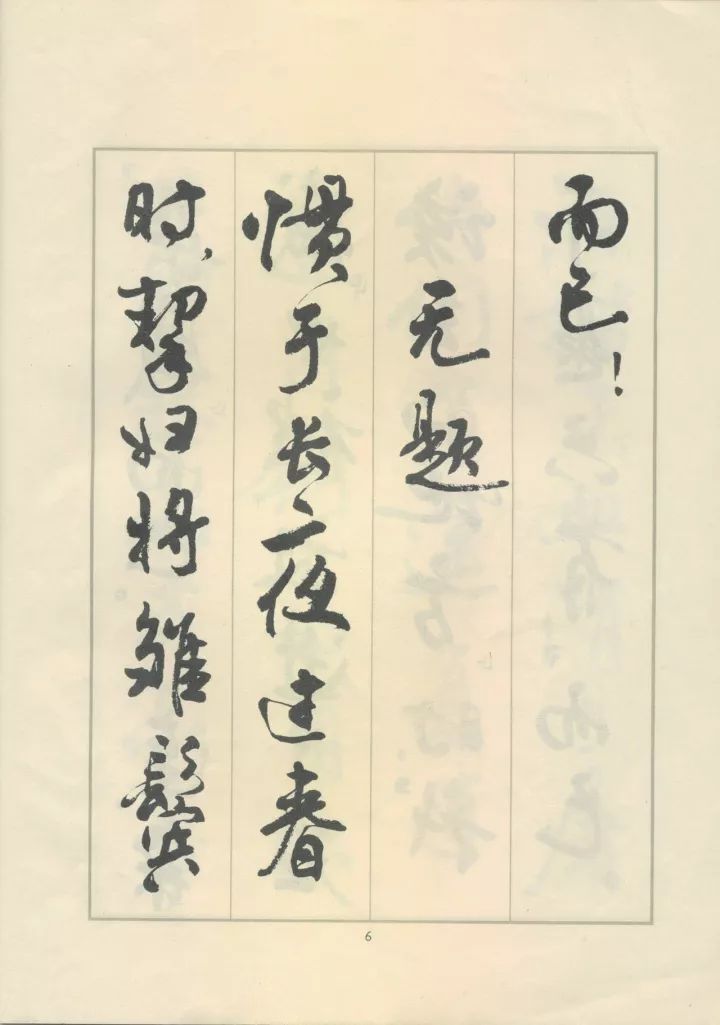 而已!
无题
惯于长夜过春
时,挈妇将雏鬓
6